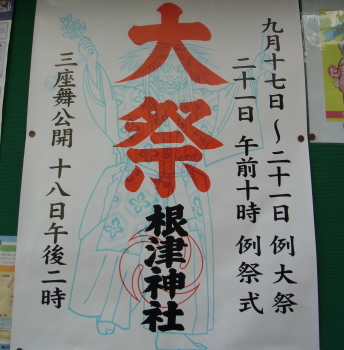 九月十七日～二十一日 例大祭
二十一日 午前十時 例祭式
大祭
根津神社
三座舞公開 十八日午後二時